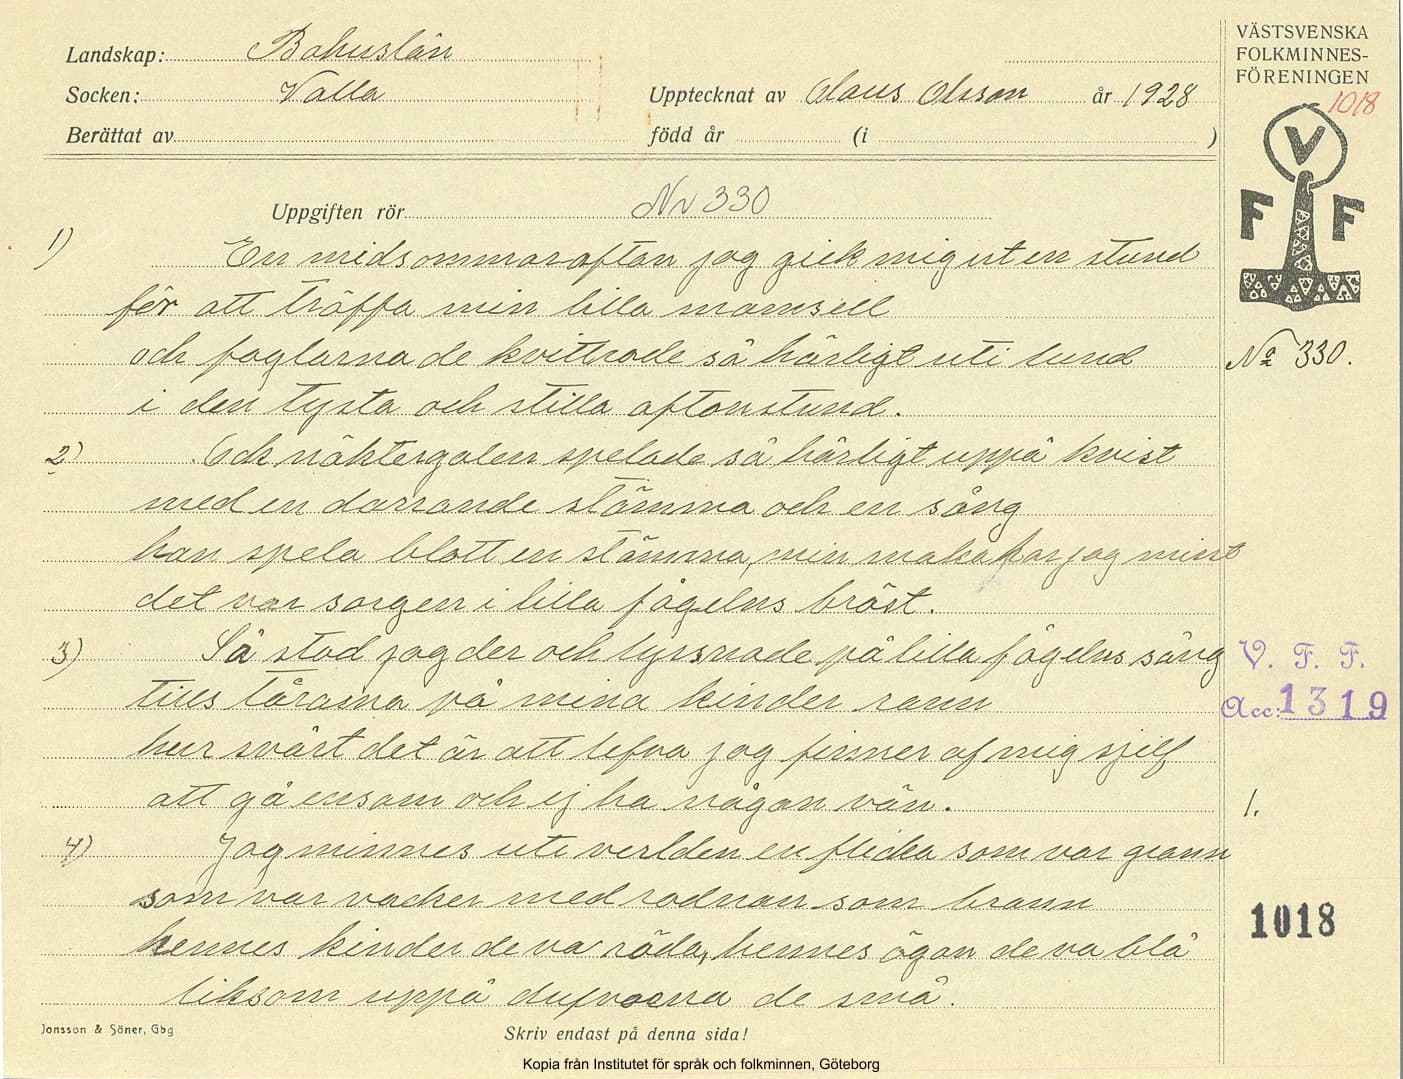 Landskap: Bohuslän
Socken: Valla
Upptecknat av Claus Olsson år 1928
Berättat av
född år (i )
VÄSTSVENSKA
FOLKMINNES-
FÖRENINGEN
1018
V
F F
Uppgiften rör Nr 330
1) En midsommarafton jag gick mig ut en stund
för att träffa min lilla mamsell
och foglarna de kvittrade så härligt uti lund
No 330.
i den tysta och stilla aftonstund.
2) Och näktergalen spelade så härligt uppå kvist
med en darrande stämma och en sång
han spela blott en stämma, min maka har jag mist
det var sorgen i lilla fågelns bröst.
3) Så stod jag der och lyssnade på lilla fågelns sång
V. F. F.
tills tårarna på mina kinder rann
Acc: 1319
hur svårt det är att lefva jag finner af mig sjelf
att gå ensam och ej ha någon vän.
1.
4) Jag minnes uti verlden en flicka som var grann
som var vacker med rodnan som brann
1018
hennes kinder de va röda, hennes ögon de va blå
liksom uppå dufvorna de små.
Jonsson & Söner, Gbg
Skriv endast på denna sida!
Kopia från Institutet för språk och folkminnen, Göteborg